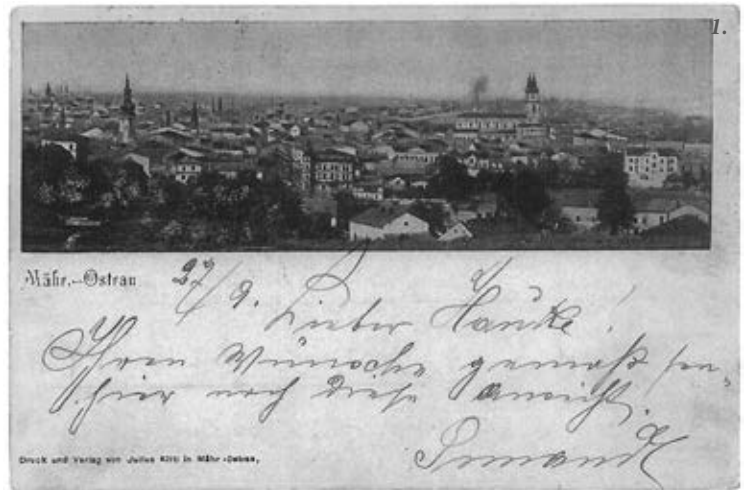 1.
Mähr.-Ostrau
27/9. Lieber Hauke!
Ihren Wunsche gemäß
hier noch diese Ansicht.
Druck und Verlag von Julius in Mähr.-Ostrau.